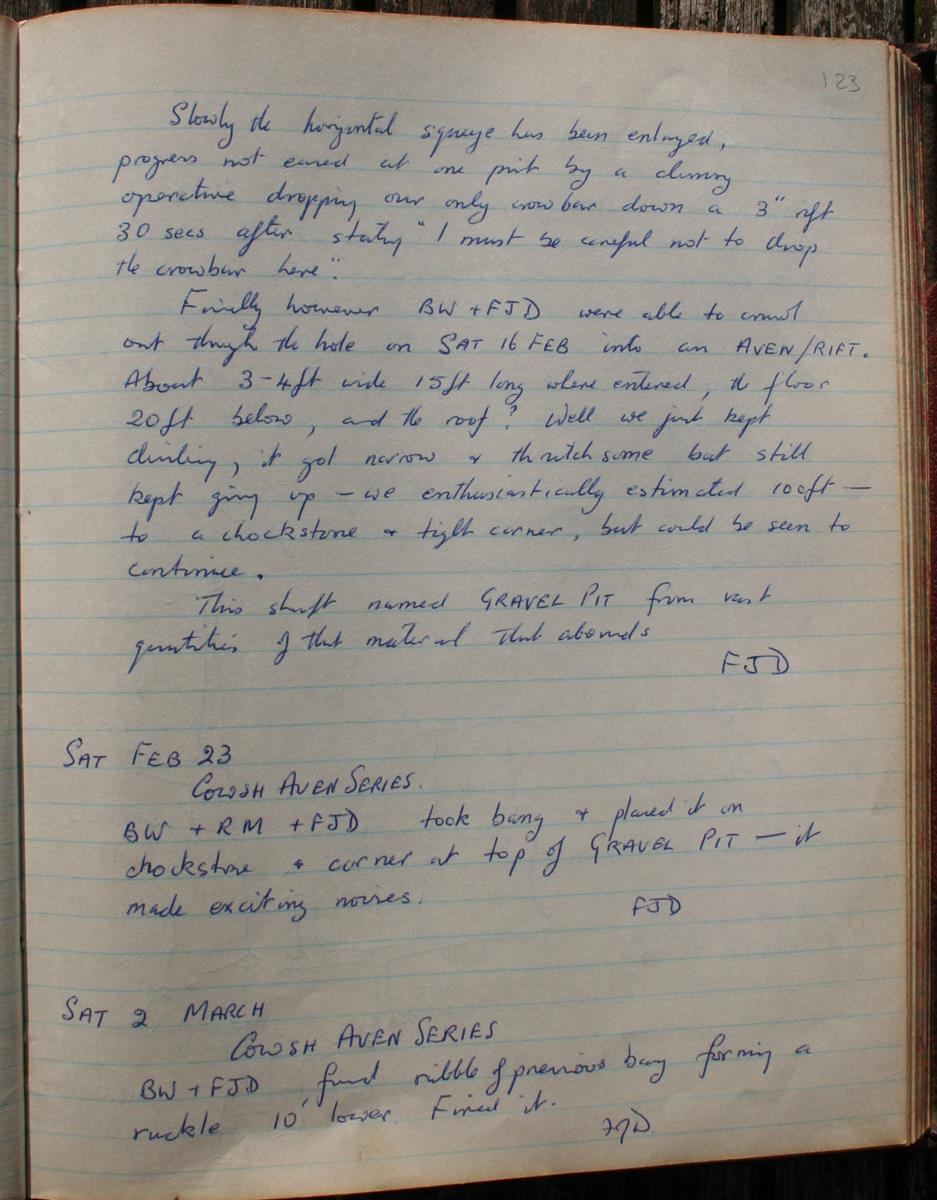 123
Slowly the horizontal squeeze has been enlarged,
progress not eased at one point by a clumsy
operative dropping our only crowbar down a 3" rift
30 secs after stating "I must be careful not to drop
the crowbar here".
Finally however BW + FJD were able to crawl
out through the hole on SAT 16 FEB into an AVEN/RIFT.
About 3-4ft wide 15ft long where entered, the floor
20ft below, and the roof? Well we just kept
climbing, it got narrow & thrutchsome but still
kept going up – we enthusiastically estimated 100ft –
to a chockstone & tight corner, but could be seen to
continue.
This shaft named GRAVEL PIT from vast
quantities of that material that abounds
FJD
SAT FEB 23
COWSH AVEN SERIES.
BW + RM + FJD took bang & placed it on
chockstone & corner at top of GRAVEL PIT – it
made exciting noises.
FJD
SAT 2 MARCH
COWSH AVEN SERIES
BW + FJD found rubble of previous bang forming a
ruckle 10' lower. Fired it.
FJD